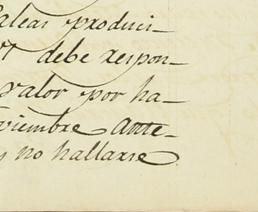 aleas produci_
debe respon_
valor por ha_
viembre Ante_
no hallarse